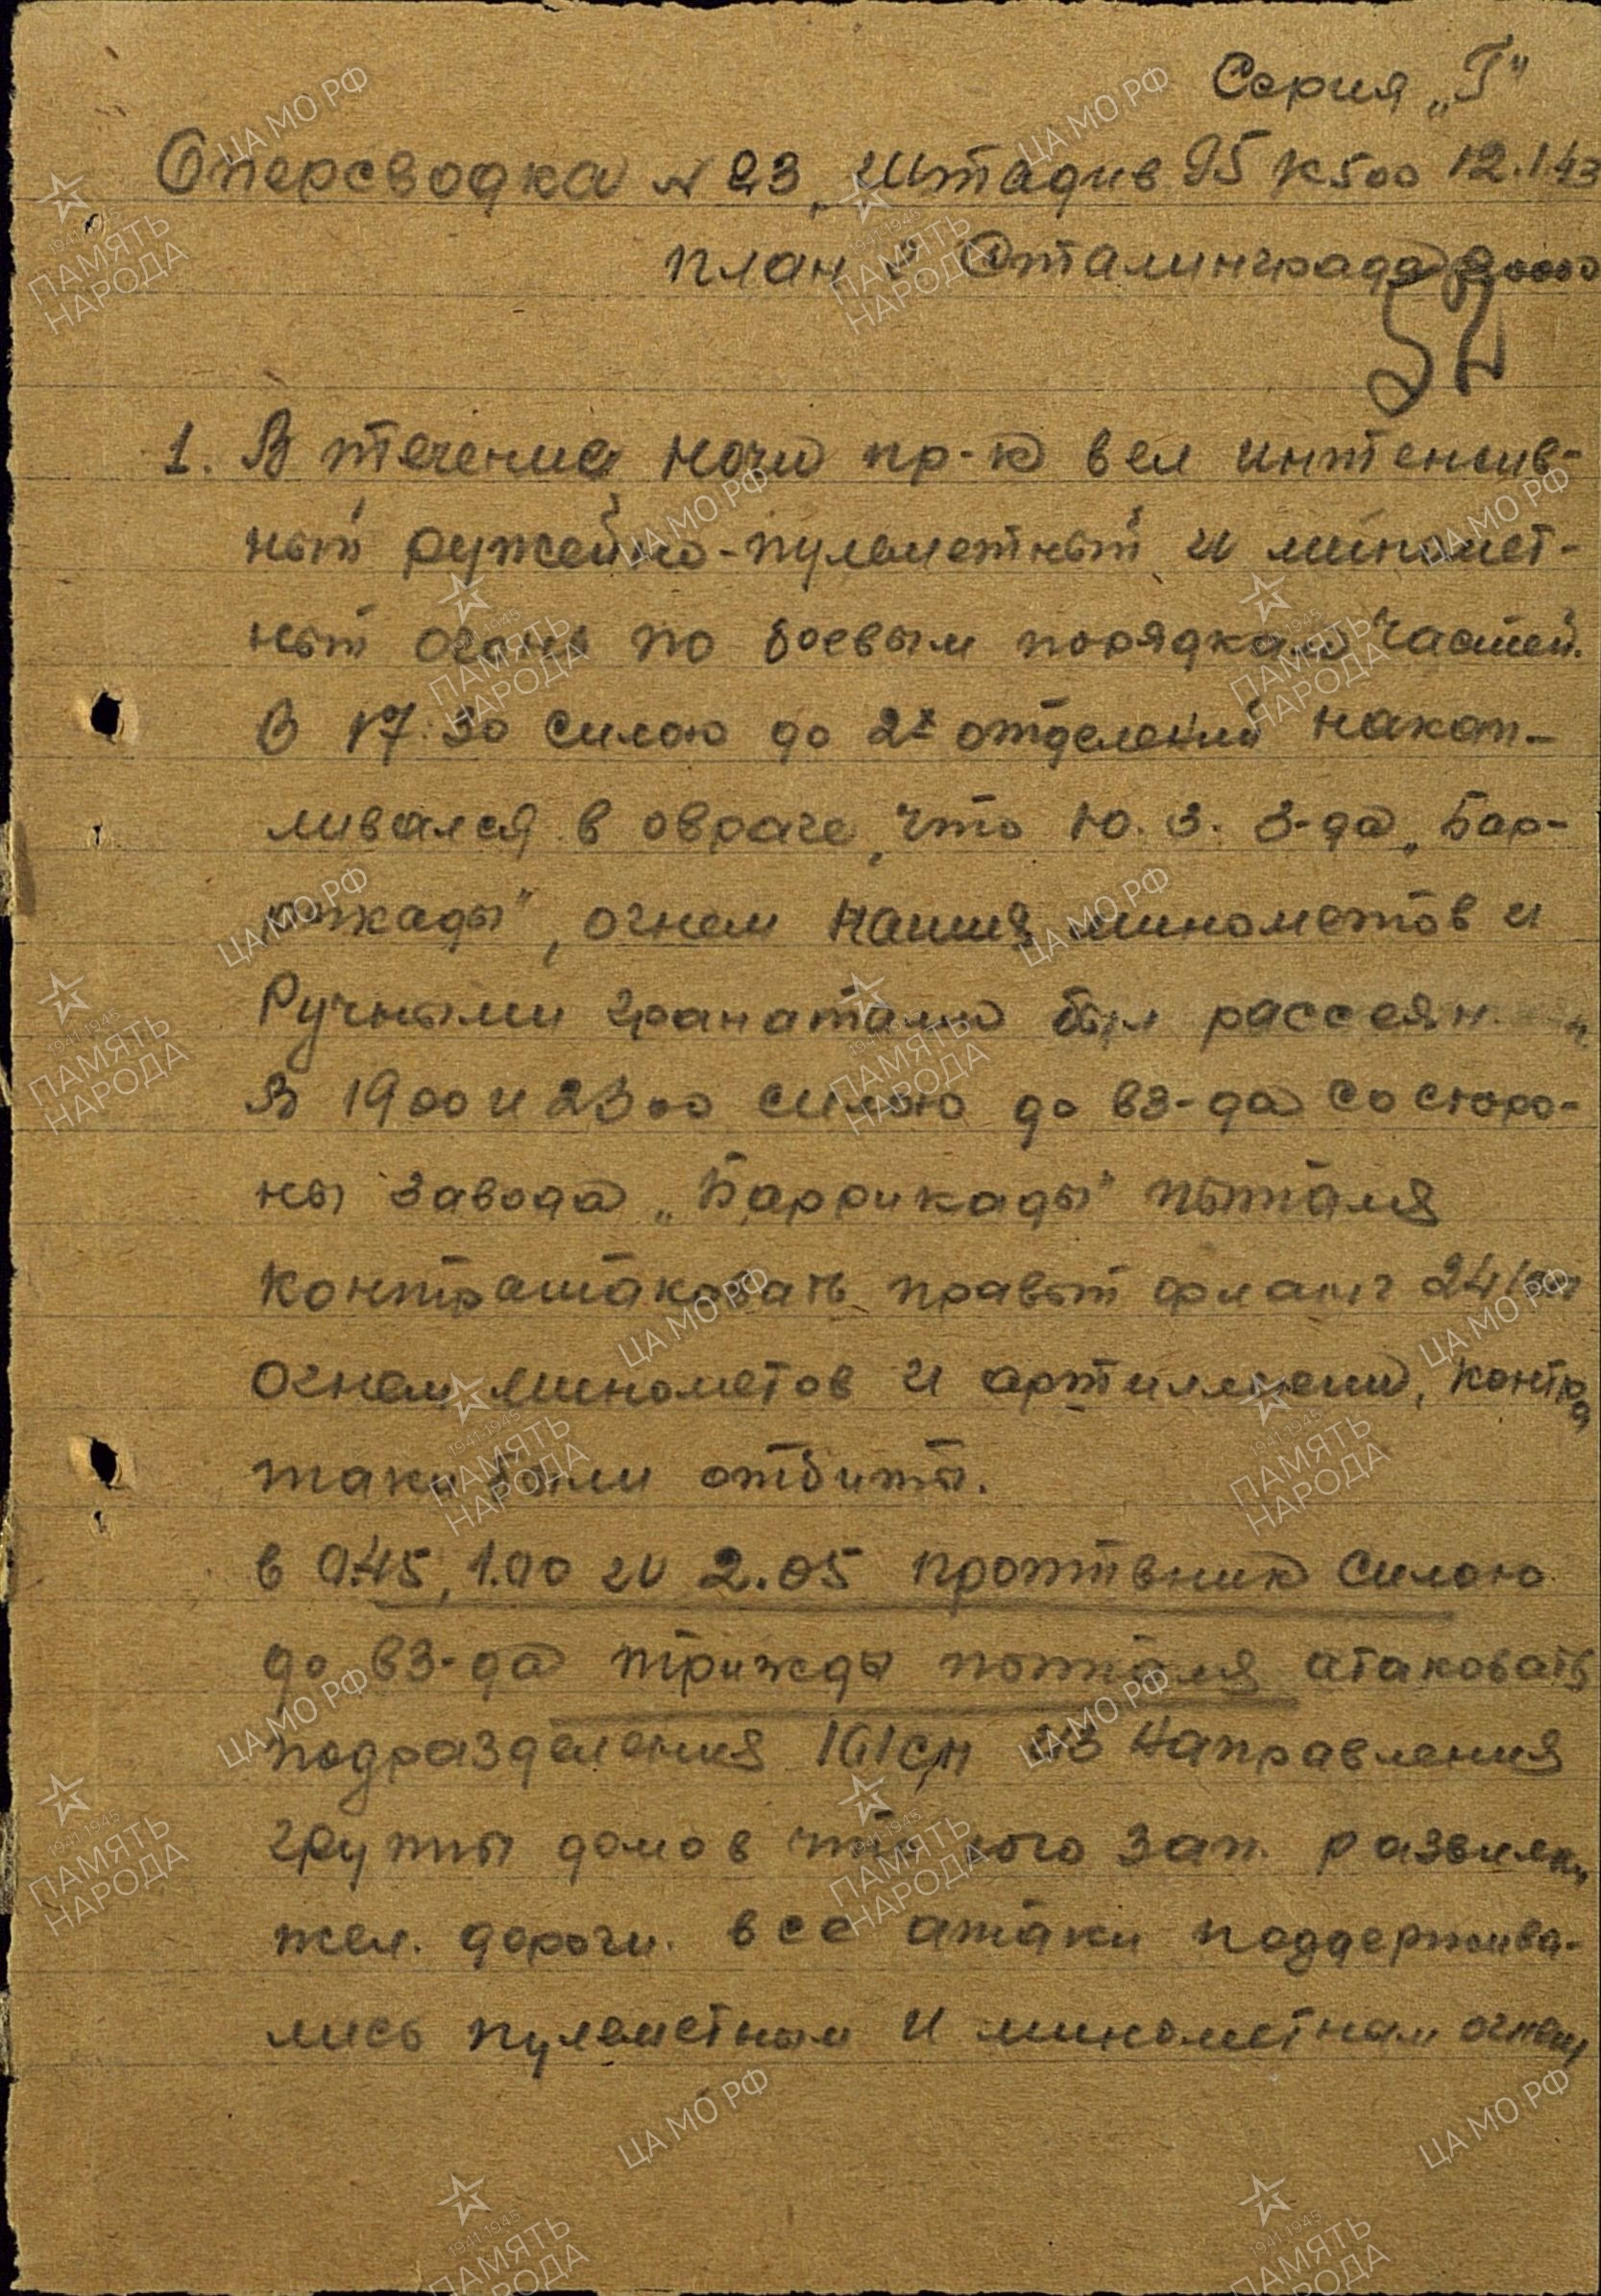 Серия „Г"
Оперсводка № 23, Штадив 95 к 5 00 12.1.43
план г. Сталинграда
1. В течение ночи пр-к вел интенсив-
ный ружейно-пулеметный и миномет-
ный огонь по боевым порядкам частей.
В 17.30 силою до 2х отделений накап-
ливался в овраге, что ю.з. з-да „Бар-
рикады", огнем наших минометов и
Ручными гранатами был рассеян.
В 19 00 и 23 00 силою до вз-да со сторо-
ны завода „Баррикады" пытался
контратаковать правый фланг 241сп
Огнем минометов и артиллерии, контра
таки были отбиты.
в 0.45, 1.00 и 2.05 противник силою
до вз-да трижды пытался атаковать
подразделения 161сп из направления
группы домов что юго зап.
жел. дороги. все атаки поддержива-
лись пулеметным и минометным огнем
ЦА МО РФ
1941 1945
ПАМЯТЬ
НАРОДА